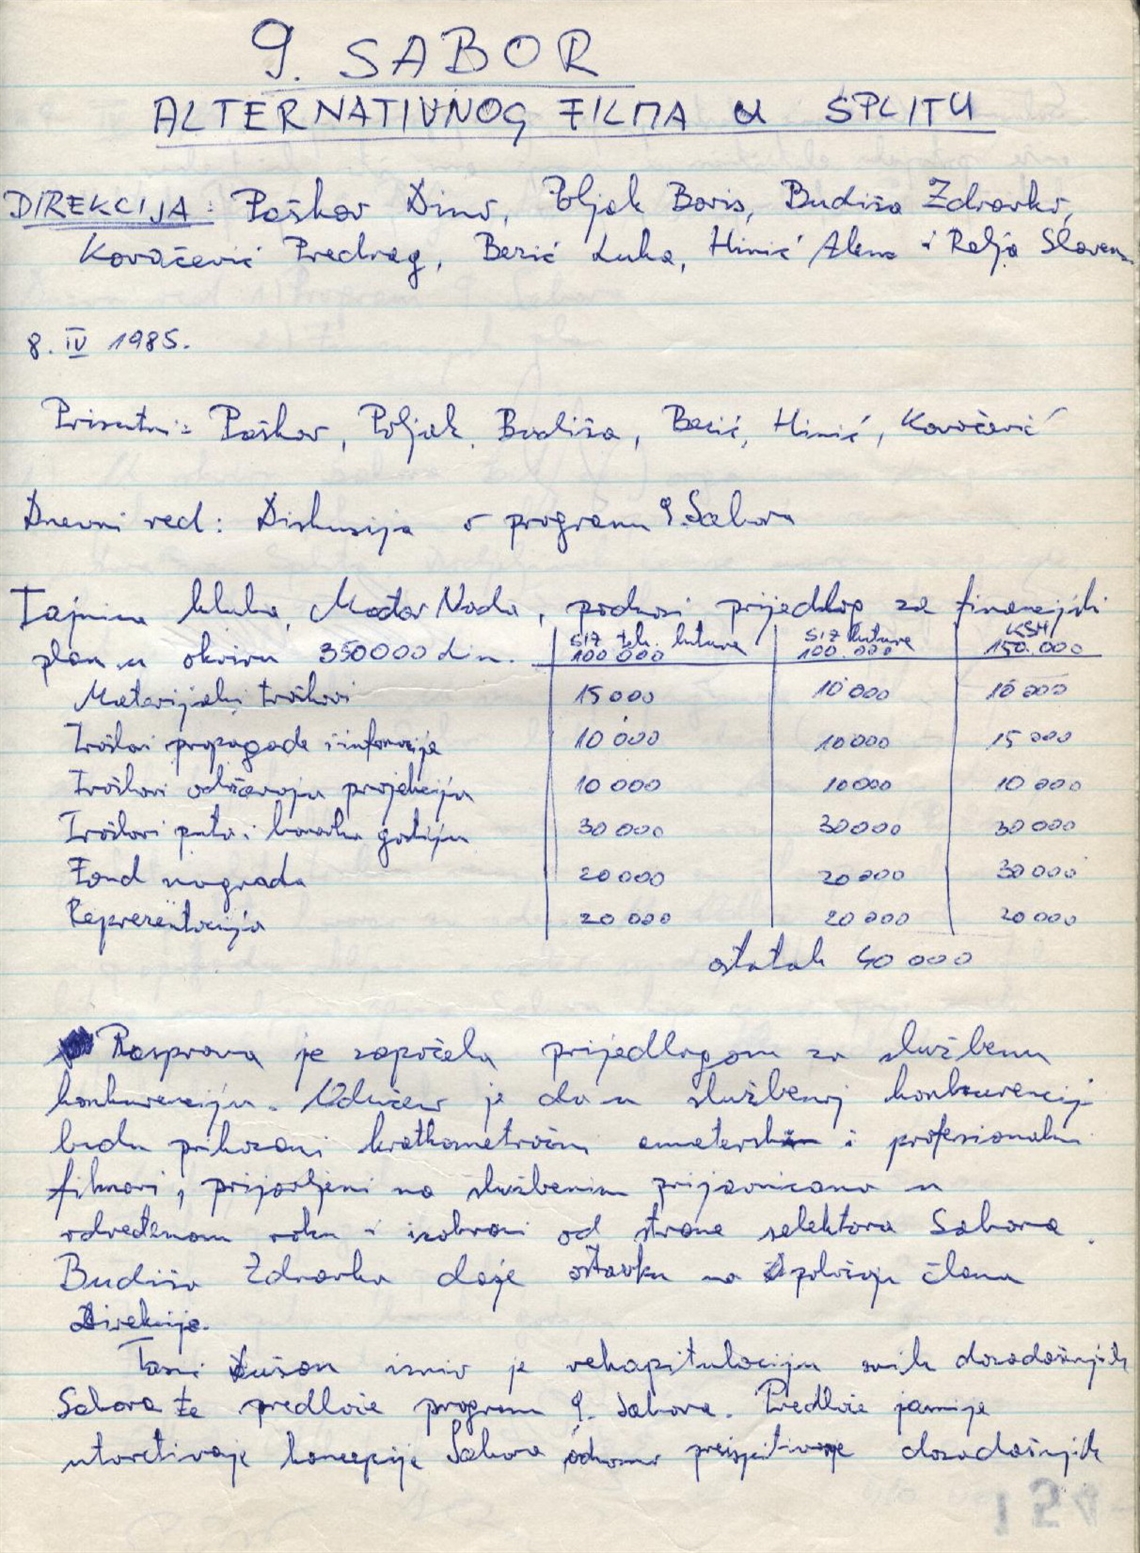 9. SABOR
ALTERNATIVNOG FILMA U SPLITU
DIREKCIJA: Paškov Dino, Poljak Boris, Budiša Zdravko,
Kovačević Predrag, Bezić Luka, Hinić Alena i Relja Slaven
8. IV 1985.
Prisutni: Paškov, Poljak, Budiša, Bezić, Hinić, Kovačević
Dnevni red: Diskusija o programu 9. Sabora
Tajnica kluba, Nada, podnosi prijedlog za financijski
plan u okviru 350000 din. SIZ teh. kulture 100 000 SIZ kulture 100.000 KSH 150.000
Materijalni troškovi 15 000 10 000 10 000
Troškovi propagade i informacije 10 000 10000 15 000
Troškovi održavanja projekcija 10 000 10000 10 000
Troškovi puta i boravka gostiju 30 000 30000 30 000
Fond nagrada 20 000 20 000 30 000
Reprezentacija 20 000 20 000 20 000
ostatak 40 000
Rasprava je započela prijedlogom za službenu
konkurenciju. Odlučeno je da u službenoj konkurenciji
budu prikazani kratkometražni amaterski i profesionalni
filmovi, prijavljeni na službenim prijavnicama u
određenom roku i izabrani od strane selektora Sabora.
Budiša Zdravko daje ostavku na položaj člana
Direkcije.
Tasić Dušan iznio je rekapitulaciju svih dosadašnjih
Sabora te predlože program 9. Sabora. Predlože jasnije
utvrđivanje koncepcije Sabora odnosno preispitivanje dosadašnjih